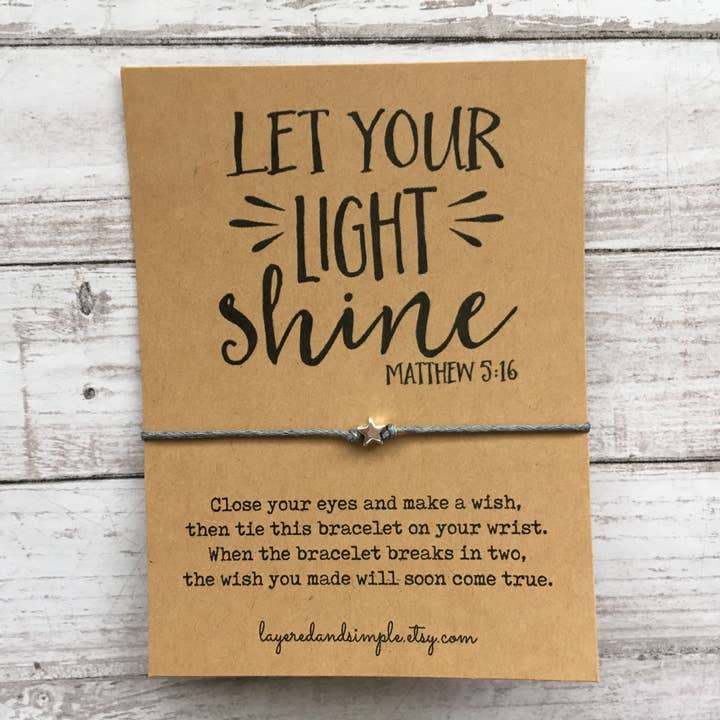 LET YOUR
LIGHT
shine
MATTHEW 5:16
Close your eyes and make a wish,
then tie this bracelet on your wrist.
When the bracelet breaks in two,
the wish you made will soon come true.
layeredandsimple.etsy.com